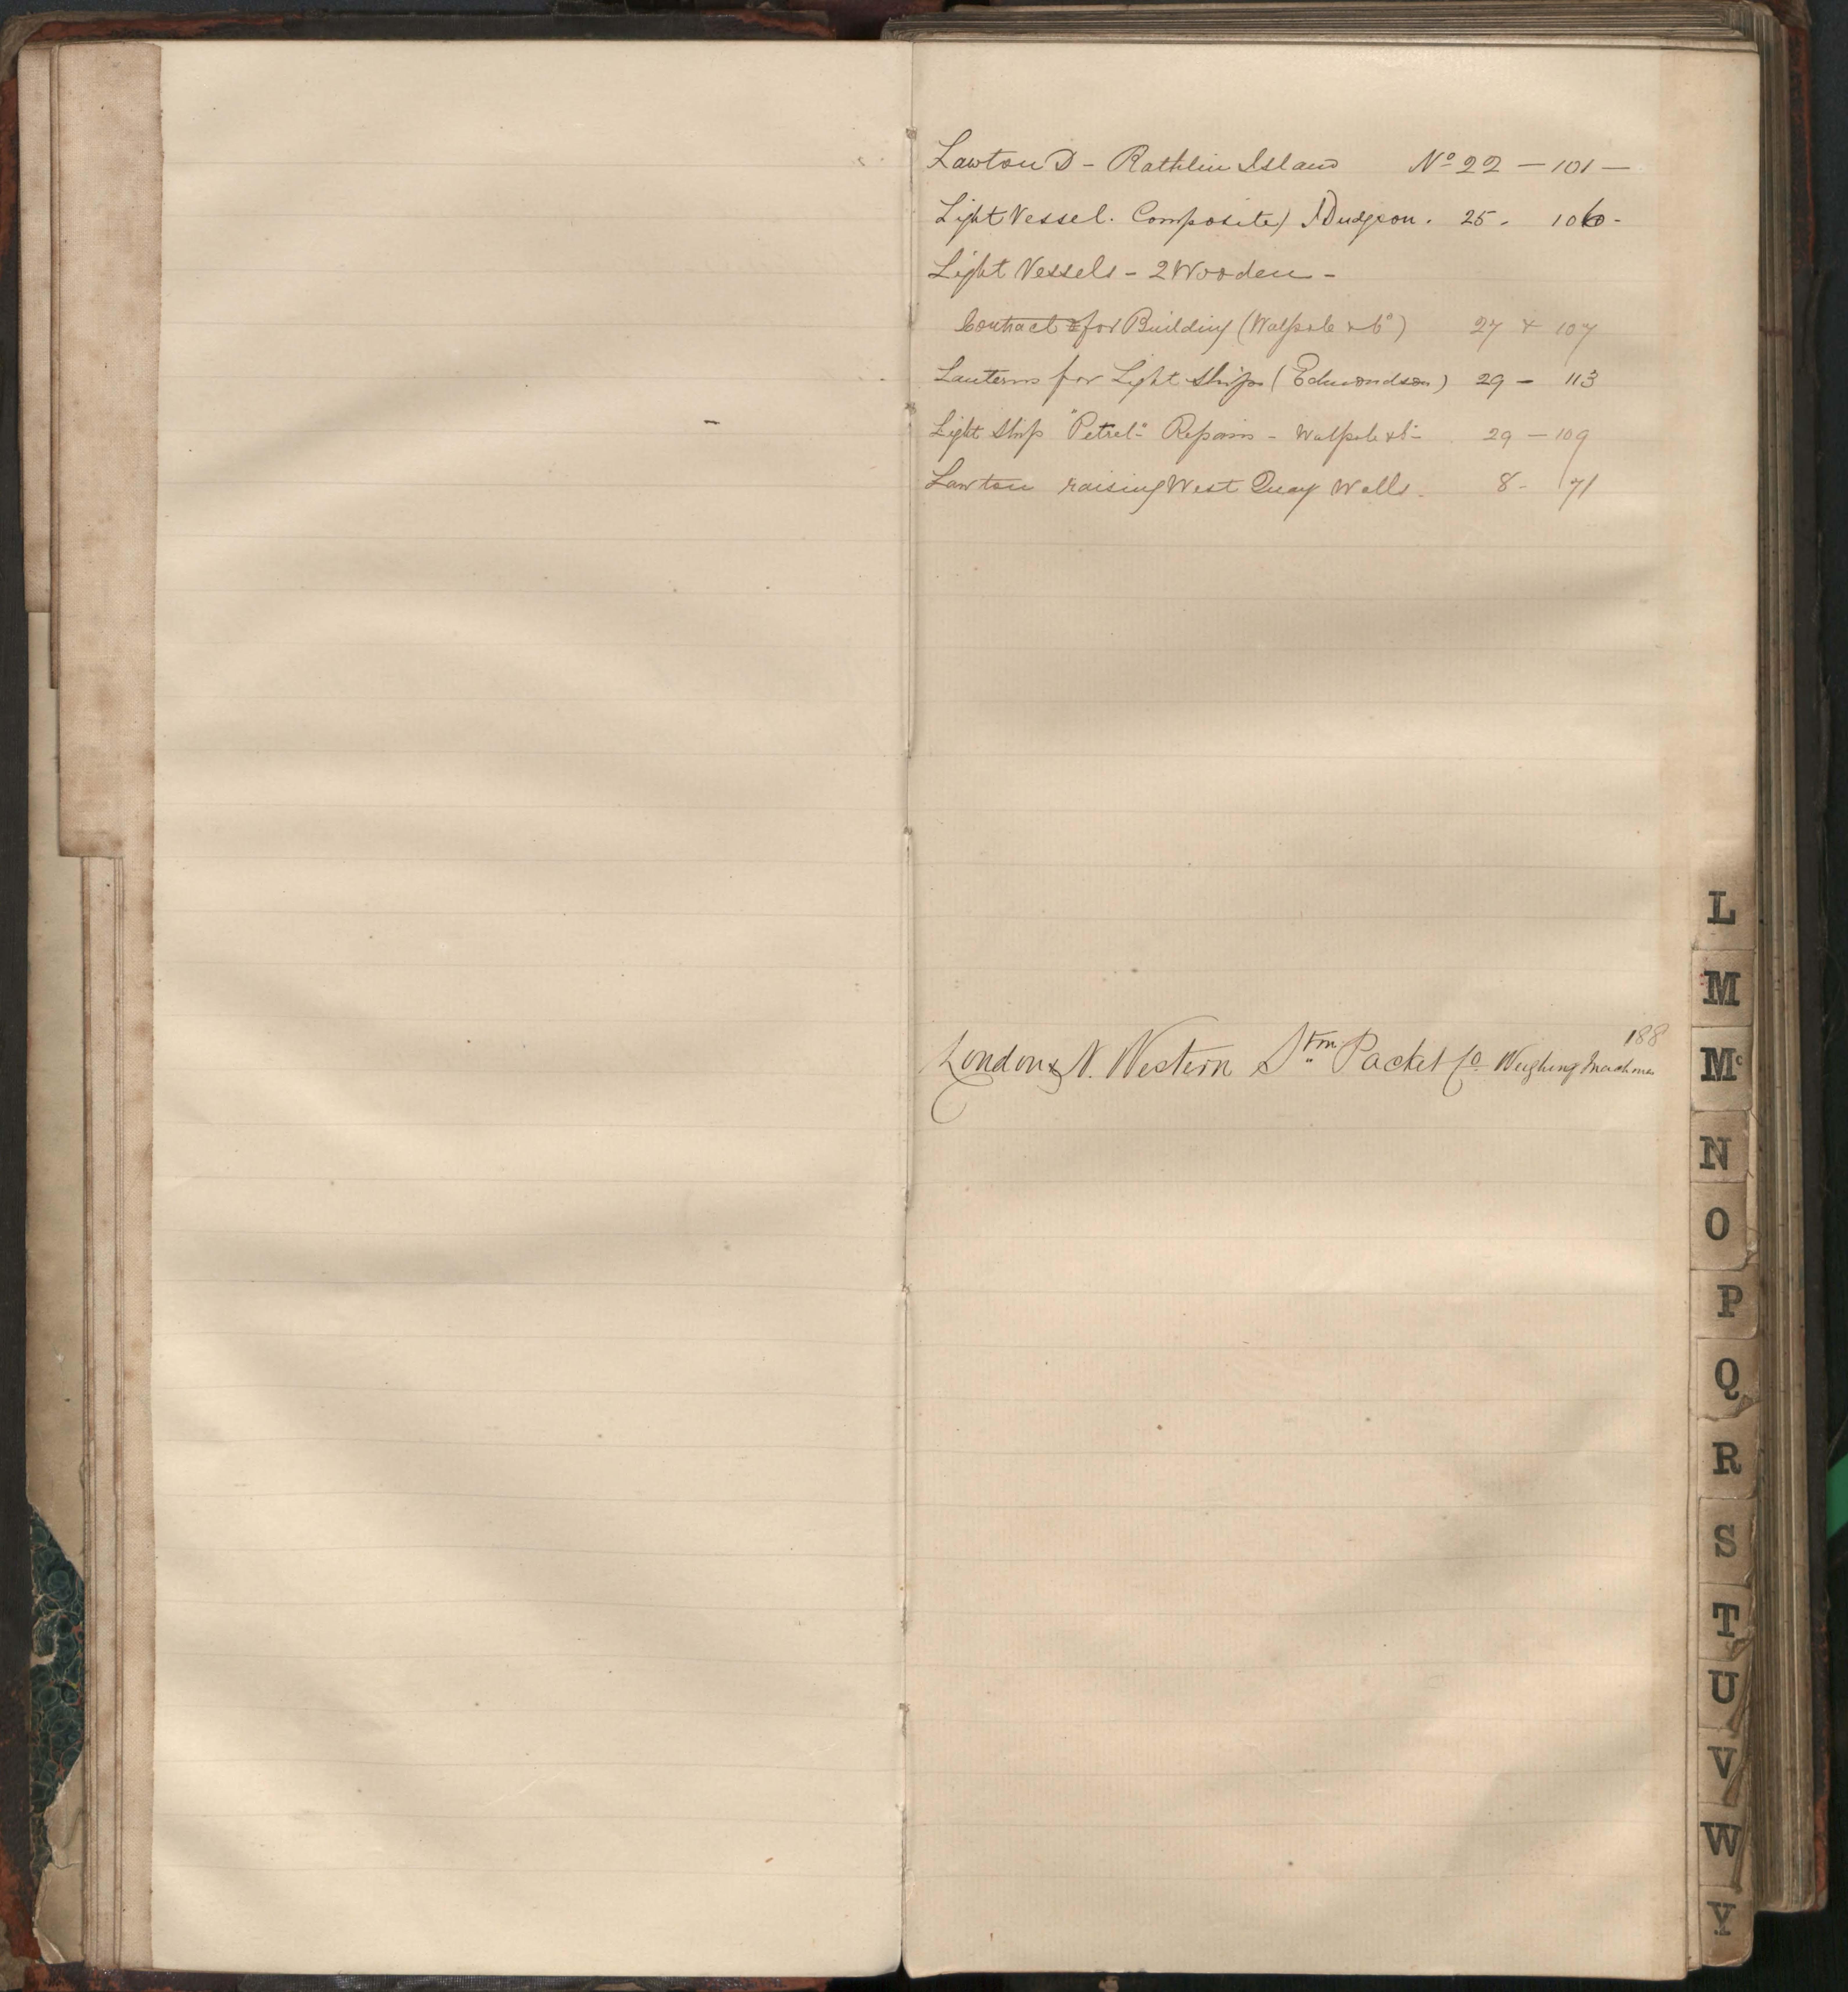 Lawton D - Rathlin Island No 22 - 101 -
Light Vessel. Composite) Dudgeon. 25. 106 -
Light Vessels - 2 Wooden -
Contract for Building (Walpole & Co) 27 & 107
Lanterns for Light Ships (Edmondson) 29 - 113
Light Ship "Petrel" Repairs - Walpole & Co - 29 - 109
Lawton raising West Quay Walls. 8 - 71
188
London & N. Western Stm. Packet Co Weighing Machines
L
M
Mc
N
O
P
Q
R
S
T
U
V
W
Y